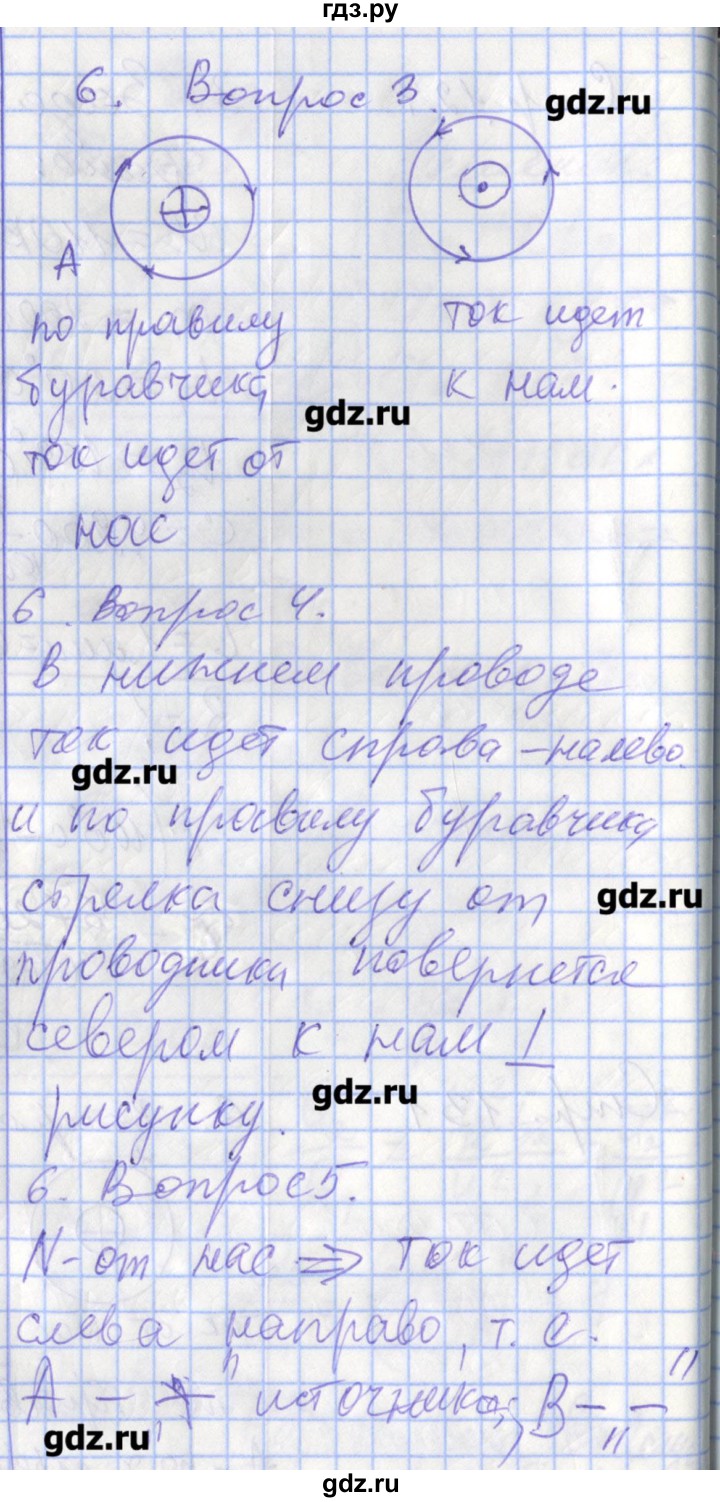 гдз.ру
6. Вопрос 3.
gdz.ru
А
по правилу
буравчика,
ток идет от
нас
ток идет
к нам.
gdz.ru
6. Вопрос 4.
В нижнем проводе
ток идет справа-налево
gdz.ru
и по правилу буравчика
стрелка снизу от
gdz.ru
проводника повернется
севером к нам ⊥
gdz.ru
рисунку.
6. Вопрос 5.
N-от нас ⇒ ток идет
слева направо, т.е.
А - "+" источника; В - "-"
gdz.ru
gdz.ru